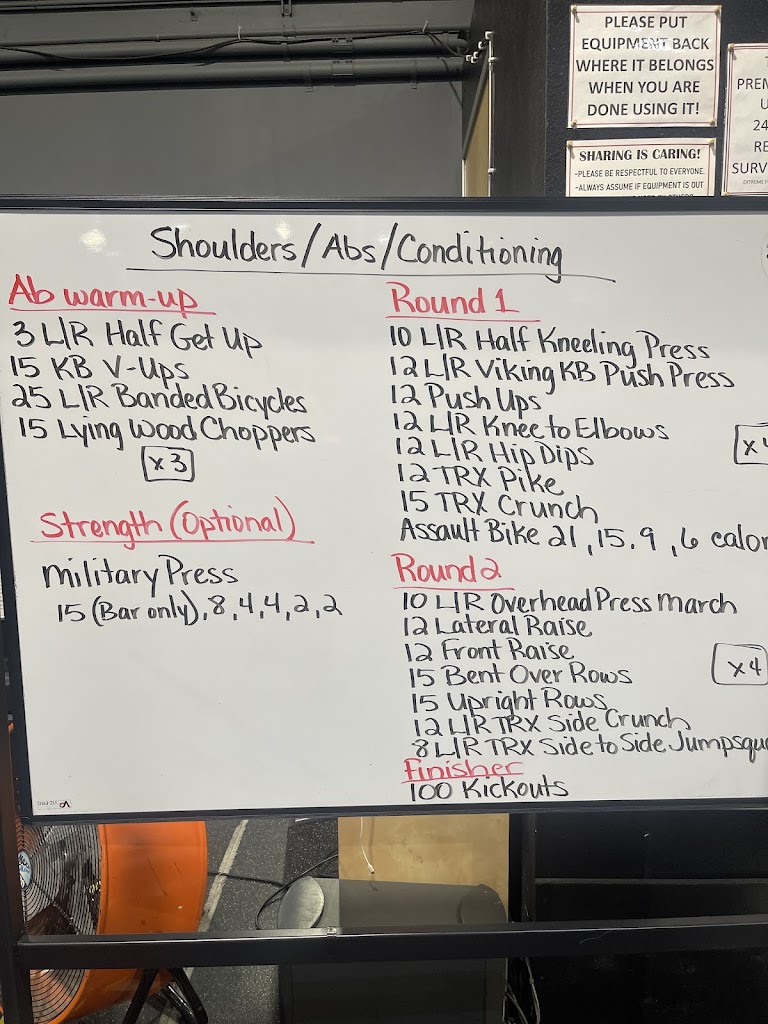 PLEASE PUT
EQUIPMENT BACK
WHERE IT BELONGS
WHEN YOU ARE
DONE USING IT!
SHARING IS CARING!
-PLEASE BE RESPECTFUL TO EVERYONE.
-ALWAYS ASSUME IF EQUIPMENT IS OUT
PREM
U
24
RE
SURV
Shoulders/Abs/Conditioning
Ab warm-up
3 L/R Half Get Up
15 KB V-Ups
25 L/R Banded Bicycles
15 Lying Wood Choppers
x3
Strength (Optional)
Military Press
15 (Bar only), 8, 4, 4, 2, 2
Round 1
10 L/R Half Kneeling Press
12 L/R Viking KB Push Press
12 Push Ups
12 L/R Knee to Elbows
12 L/R Hip Dips
12 TRX Pike
15 TRX Crunch
Assault Bike 21, 15, 9, 6 calor
x4
Round 2
10 L/R Overhead Press March
12 Lateral Raise
12 Front Raise
15 Bent Over Rows
15 Upright Rows
12 L/R TRX Side Crunch
8 L/R TRX Side to Side Jumpsqu
x4
Finisher
100 Kickouts